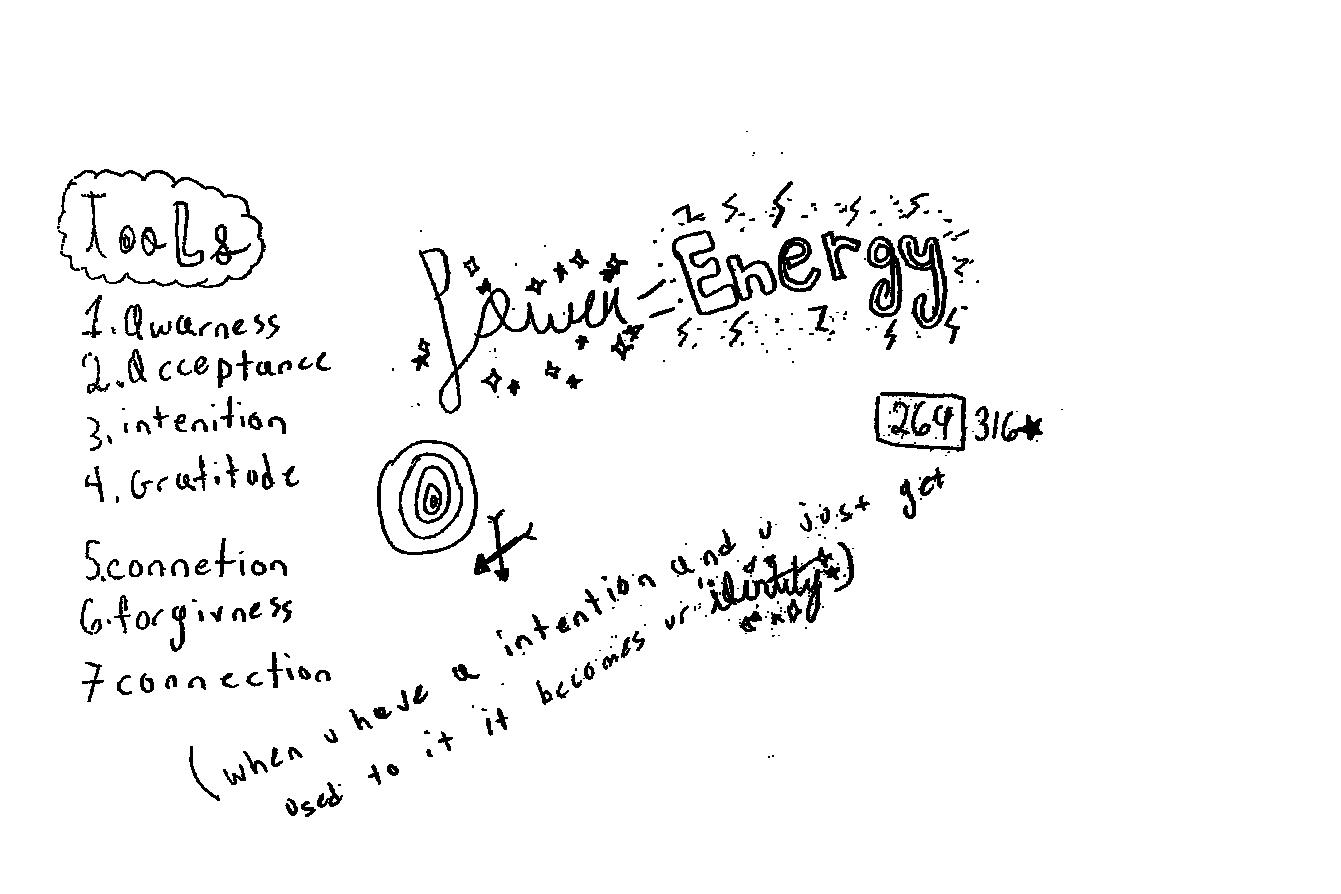 Tools
1. Awarness
2. Acceptance
3. intenition
4. Gratitude
5. connetion
6. forgivness
7 connection
Power = Energy
264 316
(when u have a intention and u just get
used to it it becomes ur "identity")